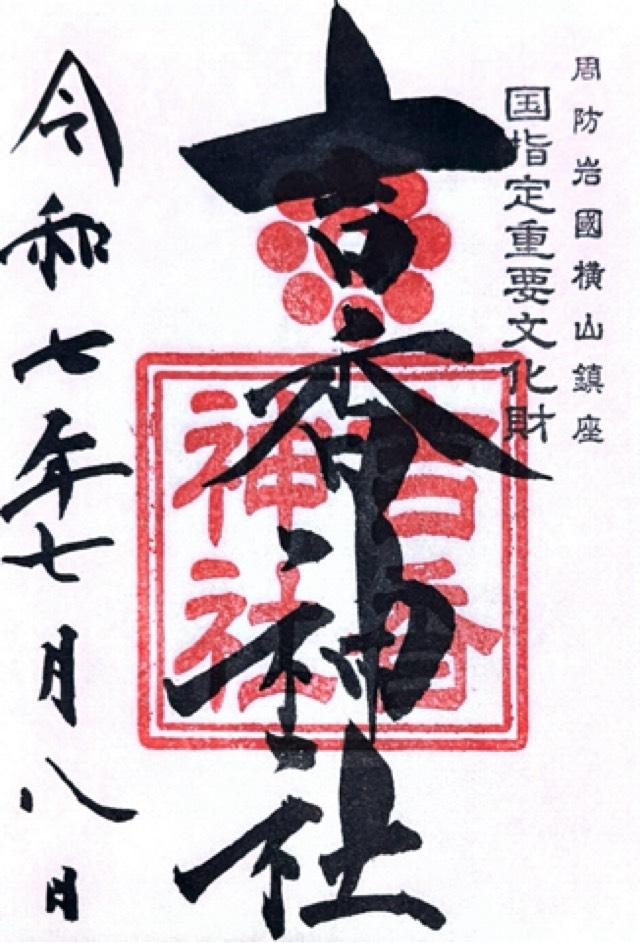 周防岩國横山鎮座
国指定重要文化財
吉香神社
吉香
神社
令和七年七月八日